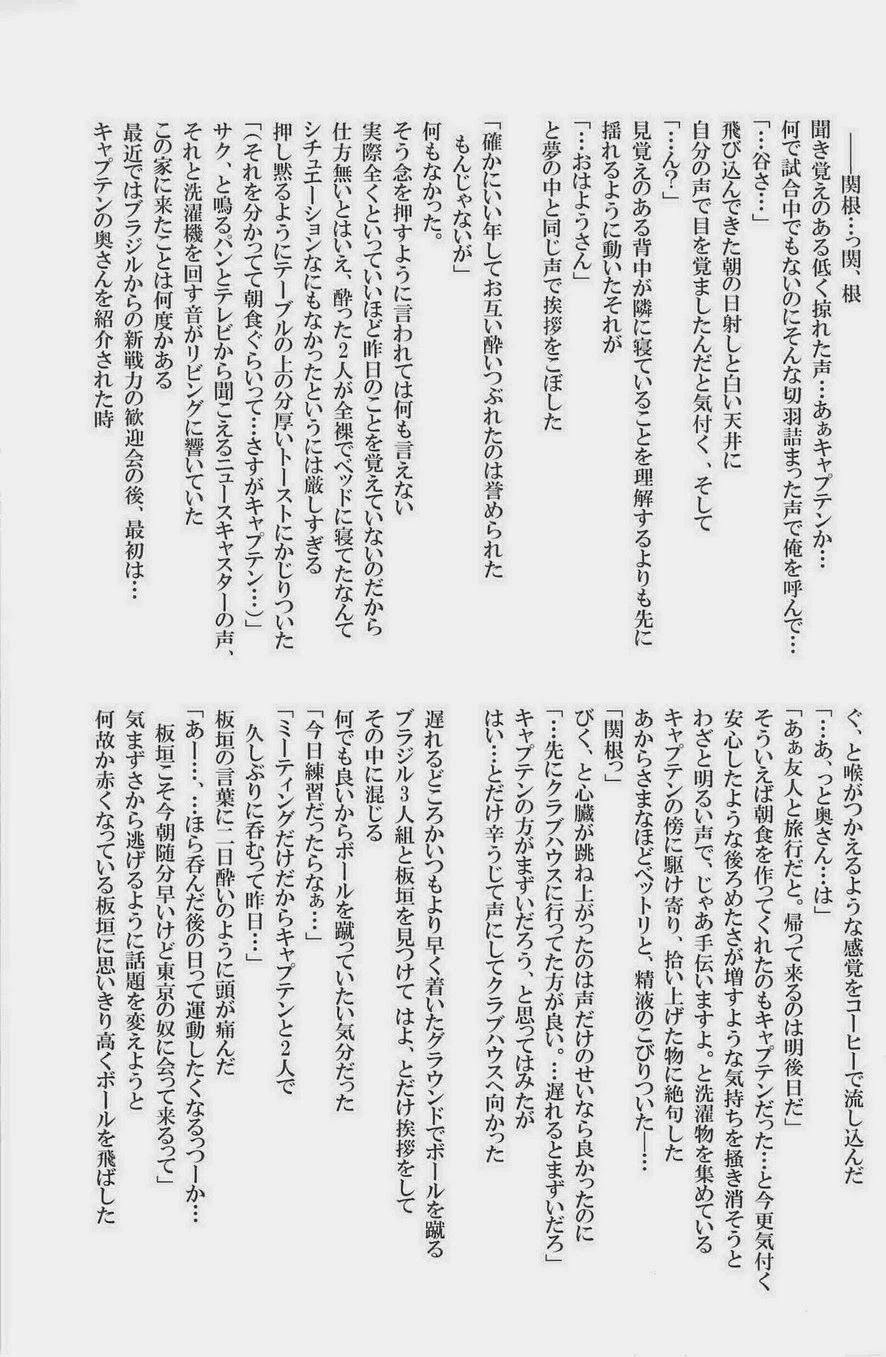 ――関根…っ関、根
聞き覚えのある低く掠れた声…あぁキャプテンか…
何で試合中でもないのにそんな切羽詰まった声で俺を呼んで…
「…谷さ…」
飛び込んできた朝の日射しと白い天井に
自分の声で目を覚ましたんだと気付く、そして
「…ん?」
見覚えのある背中が隣に寝ていることを理解するよりも先に
揺れるように動いたそれが
「…おはようさん」
と夢の中と同じ声で挨拶をこぼした
「確かにいい年してお互い酔いつぶれたのは誉められた
もんじゃないが」
何もなかった。
そう念を押すように言われては何も言えない
実際全くといっていいほど昨日のことを覚えていないのだから
仕方無いとはいえ、酔った2人が全裸でベッドに寝てたなんて
シチュエーションなにもなかったというには厳しすぎる
押し黙るようにテーブルの上の分厚いトーストにかじりついた
「(それを分かってて朝食ぐらいって…さすがキャプテン…)」
サク、と鳴るパンとテレビから聞こえるニュースキャスターの声、
それと洗濯機を回す音がリビングに響いていた
この家に来たことは何度かある
最近ではブラジルからの新戦力の歓迎会の後、最初は…
キャプテンの奥さんを紹介された時
ぐ、と喉がつかえるような感覚をコーヒーで流し込んだ
「…あ、っと奥さん…は」
「あぁ友人と旅行だと。帰って来るのは明後日だ」
そういえば朝食を作ってくれたのもキャプテンだった…と今更気付く
安心したような後ろめたさが増すような気持ちを掻き消そうと
わざと明るい声で、じゃあ手伝いますよ。と洗濯物を集めている
キャプテンの傍に駆け寄り、拾い上げた物に絶句した
あからさまなほどベットリと、精液のこびりついた―…
「関根っ」
びく、と心臓が跳ね上がったのは声だけのせいなら良かったのに
「…先にクラブハウスに行ってた方が良い。…遅れるとまずいだろ」
キャプテンの方がまずいだろう、と思ってはみたが
はい…とだけ辛うじて声にしてクラブハウスへ向かった
遅れるどころかいつもより早く着いたグラウンドでボールを蹴る
ブラジル3人組と板垣を見つけて はよ、とだけ挨拶をして
その中に混じる
何でも良いからボールを蹴っていたい気分だった
「今日練習だったらなぁ…」
「ミーティングだけだからキャプテンと2人で
久しぶりに呑むって昨日…」
板垣の言葉に二日酔いのように頭が痛んだ
「あー…、…ほら呑んだ後の日って運動したくなるっつーか…
板垣こそ今朝随分早いけど東京の奴に会って来るって」
気まずさから逃げるように話題を変えようと
何故か赤くなっている板垣に思いきり高くボールを飛ばした